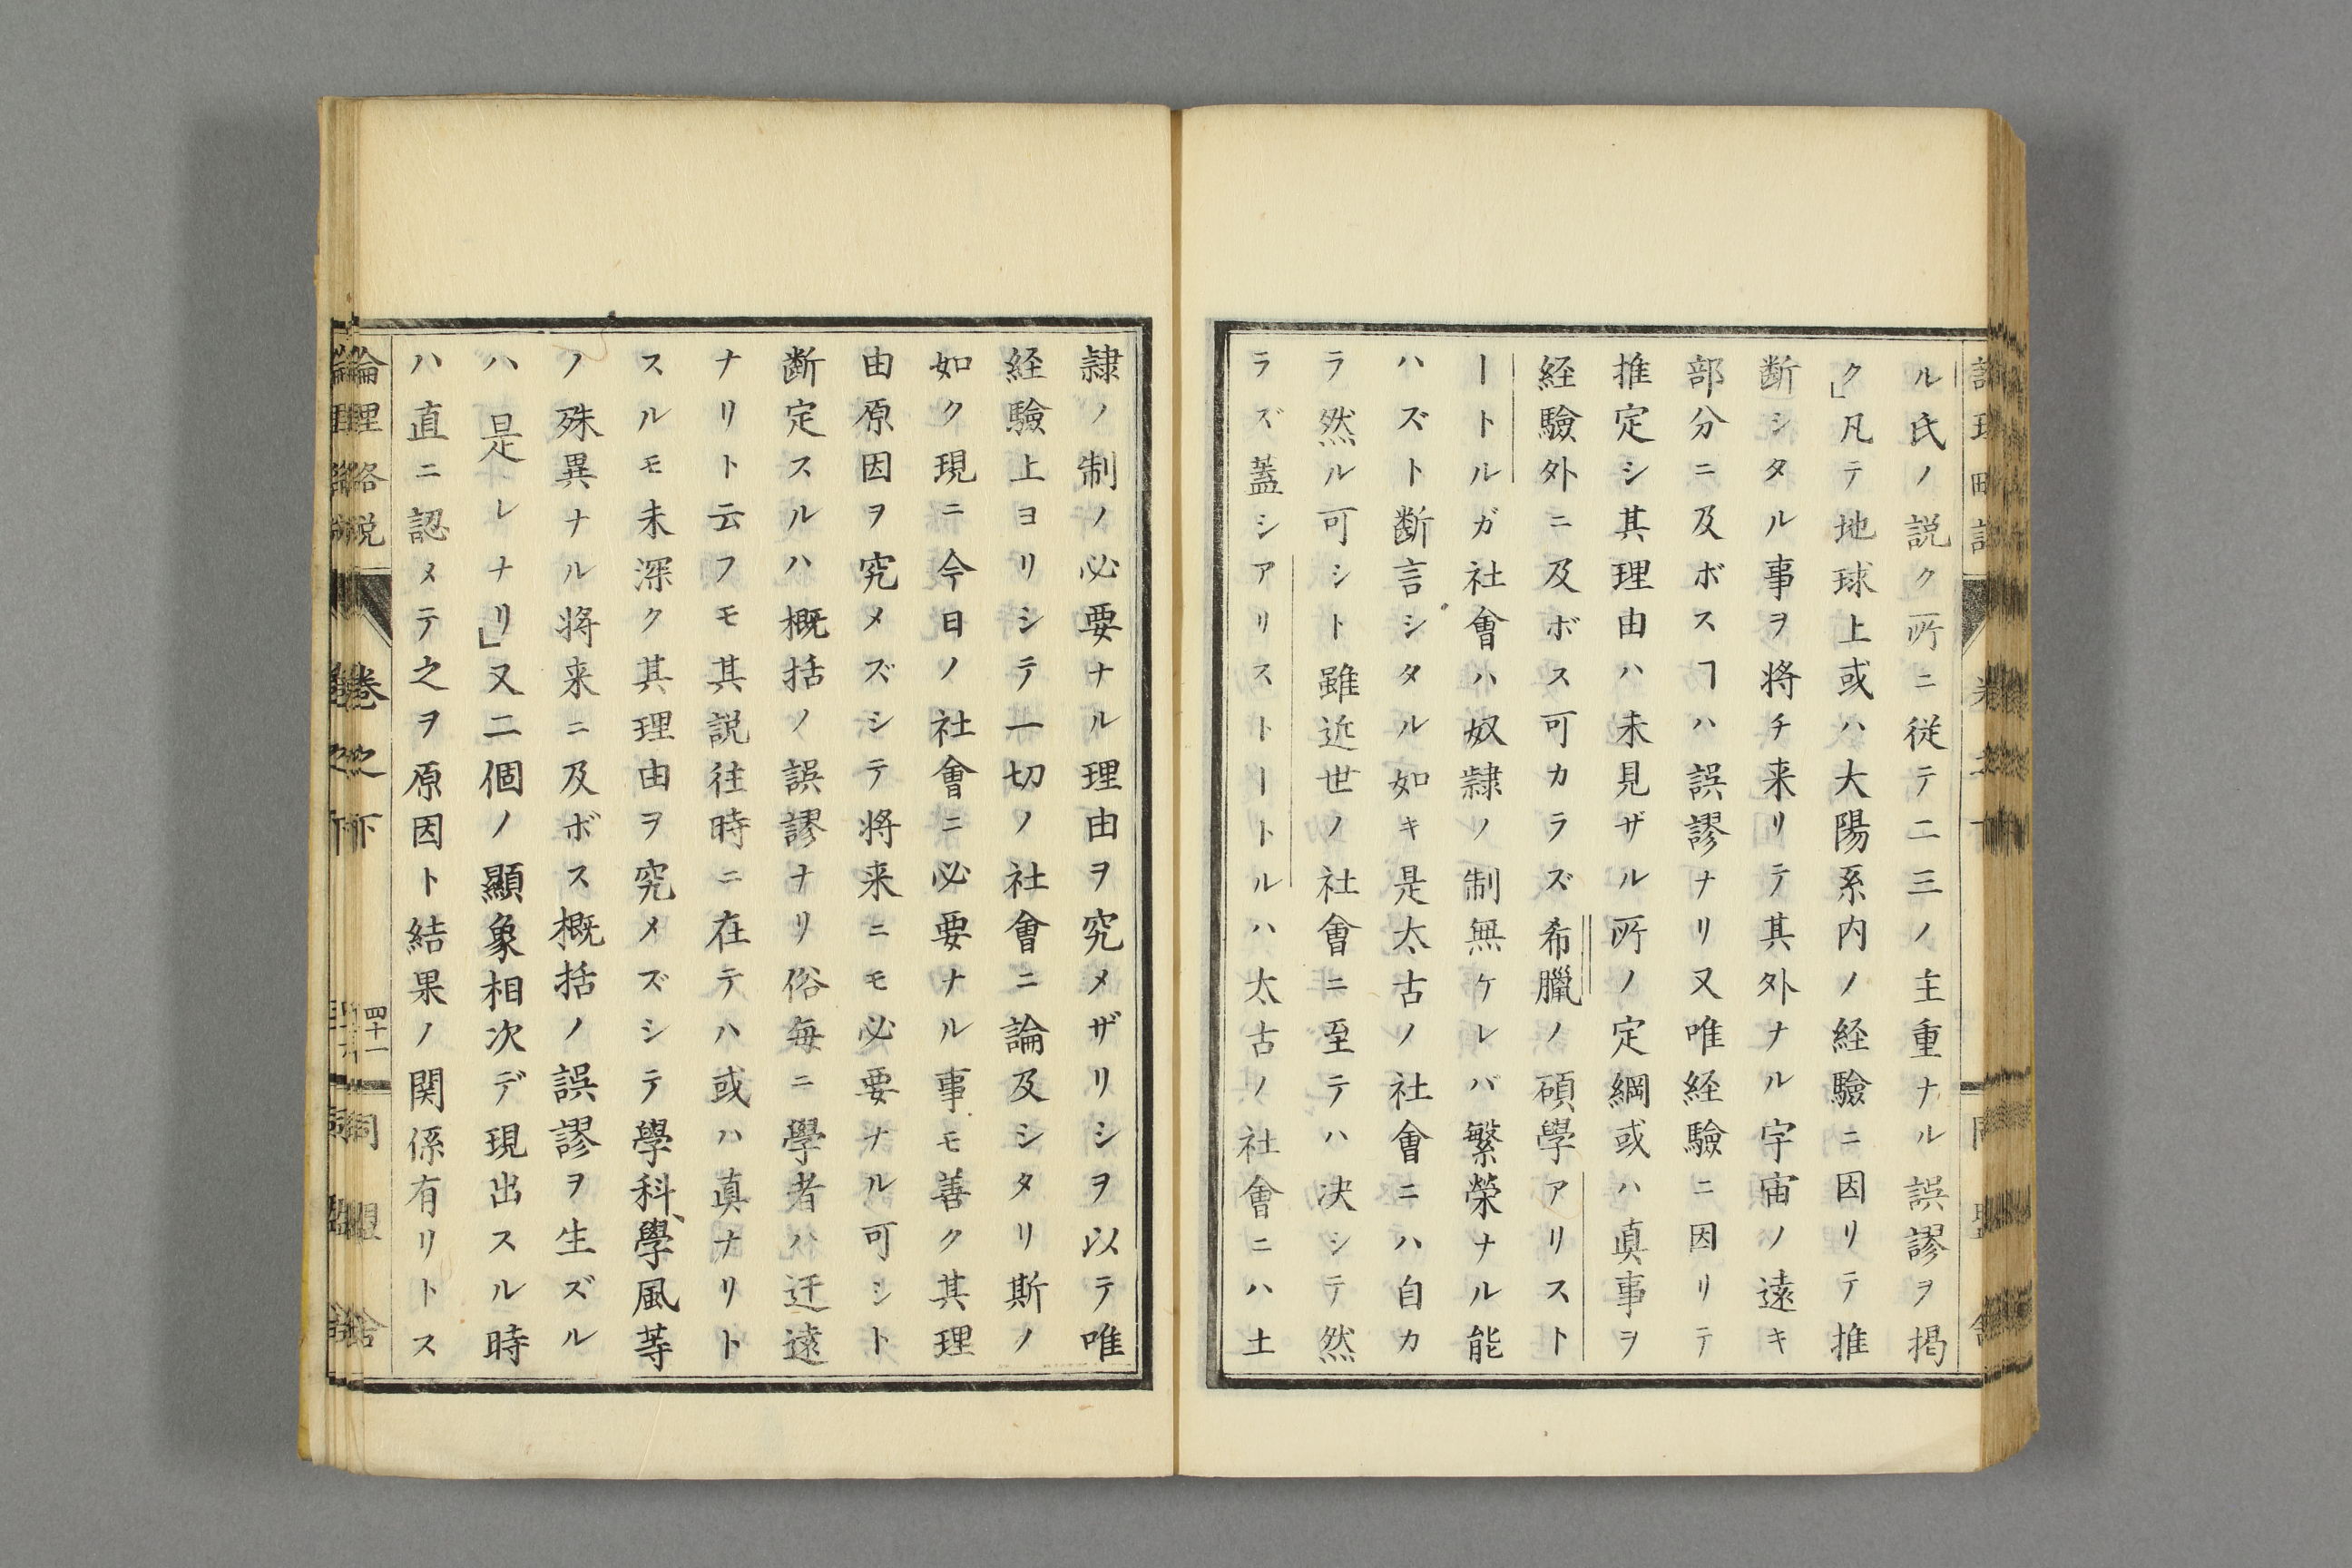 ル氏ノ説ク所ニ従テ二三ノ主重ナル誤謬ヲ掲
ク」凡テ地球上或ハ大陽系内ノ経驗ニ因リテ推
断シタル事ヲ将チ来リテ其外ナル宇宙ノ遠キ
部分ニ及ボスヿハ誤謬ナリ又唯経驗ニ因リテ
推定シ其理由ハ未見ザル所ノ定綱或ハ真事ヲ
経驗外ニ及ボス可カラズ希臘ノ碩學アリスト
ートルガ社會ハ奴隷ノ制無ケレバ繁榮ナル能
ハズト断言シタル如キ是太古ノ社會ニハ自カ
ラ然ル可シト雖近世ノ社會ニ至テハ决シテ然
ラズ蓋シアリストートルハ太古ノ社會ニハ土
隷ノ制ノ必要ナル理由ヲ究メザリシヲ以テ唯
経驗上ヨリシテ一切ノ社會ニ論及シタリ斯ノ
如ク現ニ今日ノ社會ニ必要ナル事モ善ク其理
由原因ヲ究メズシテ将来ニモ必要ナル可シト
断定スルハ概括ノ誤謬ナリ俗毎ニ學者ハ迂遠
ナリト云フモ其説往時ニ在テハ或ハ真ナリト
スルモ未深ク其理由ヲ究メズシテ學科、學風等
ノ殊異ナル将来ニ及ボス概括ノ誤謬ヲ生ズル
ハ是レナリ」又二個ノ顯象相次デ現出スル時
ハ直ニ認メテ之ヲ原因ト結果ノ関係有リトス
論理略説 卷之下 四十一 同盟舎